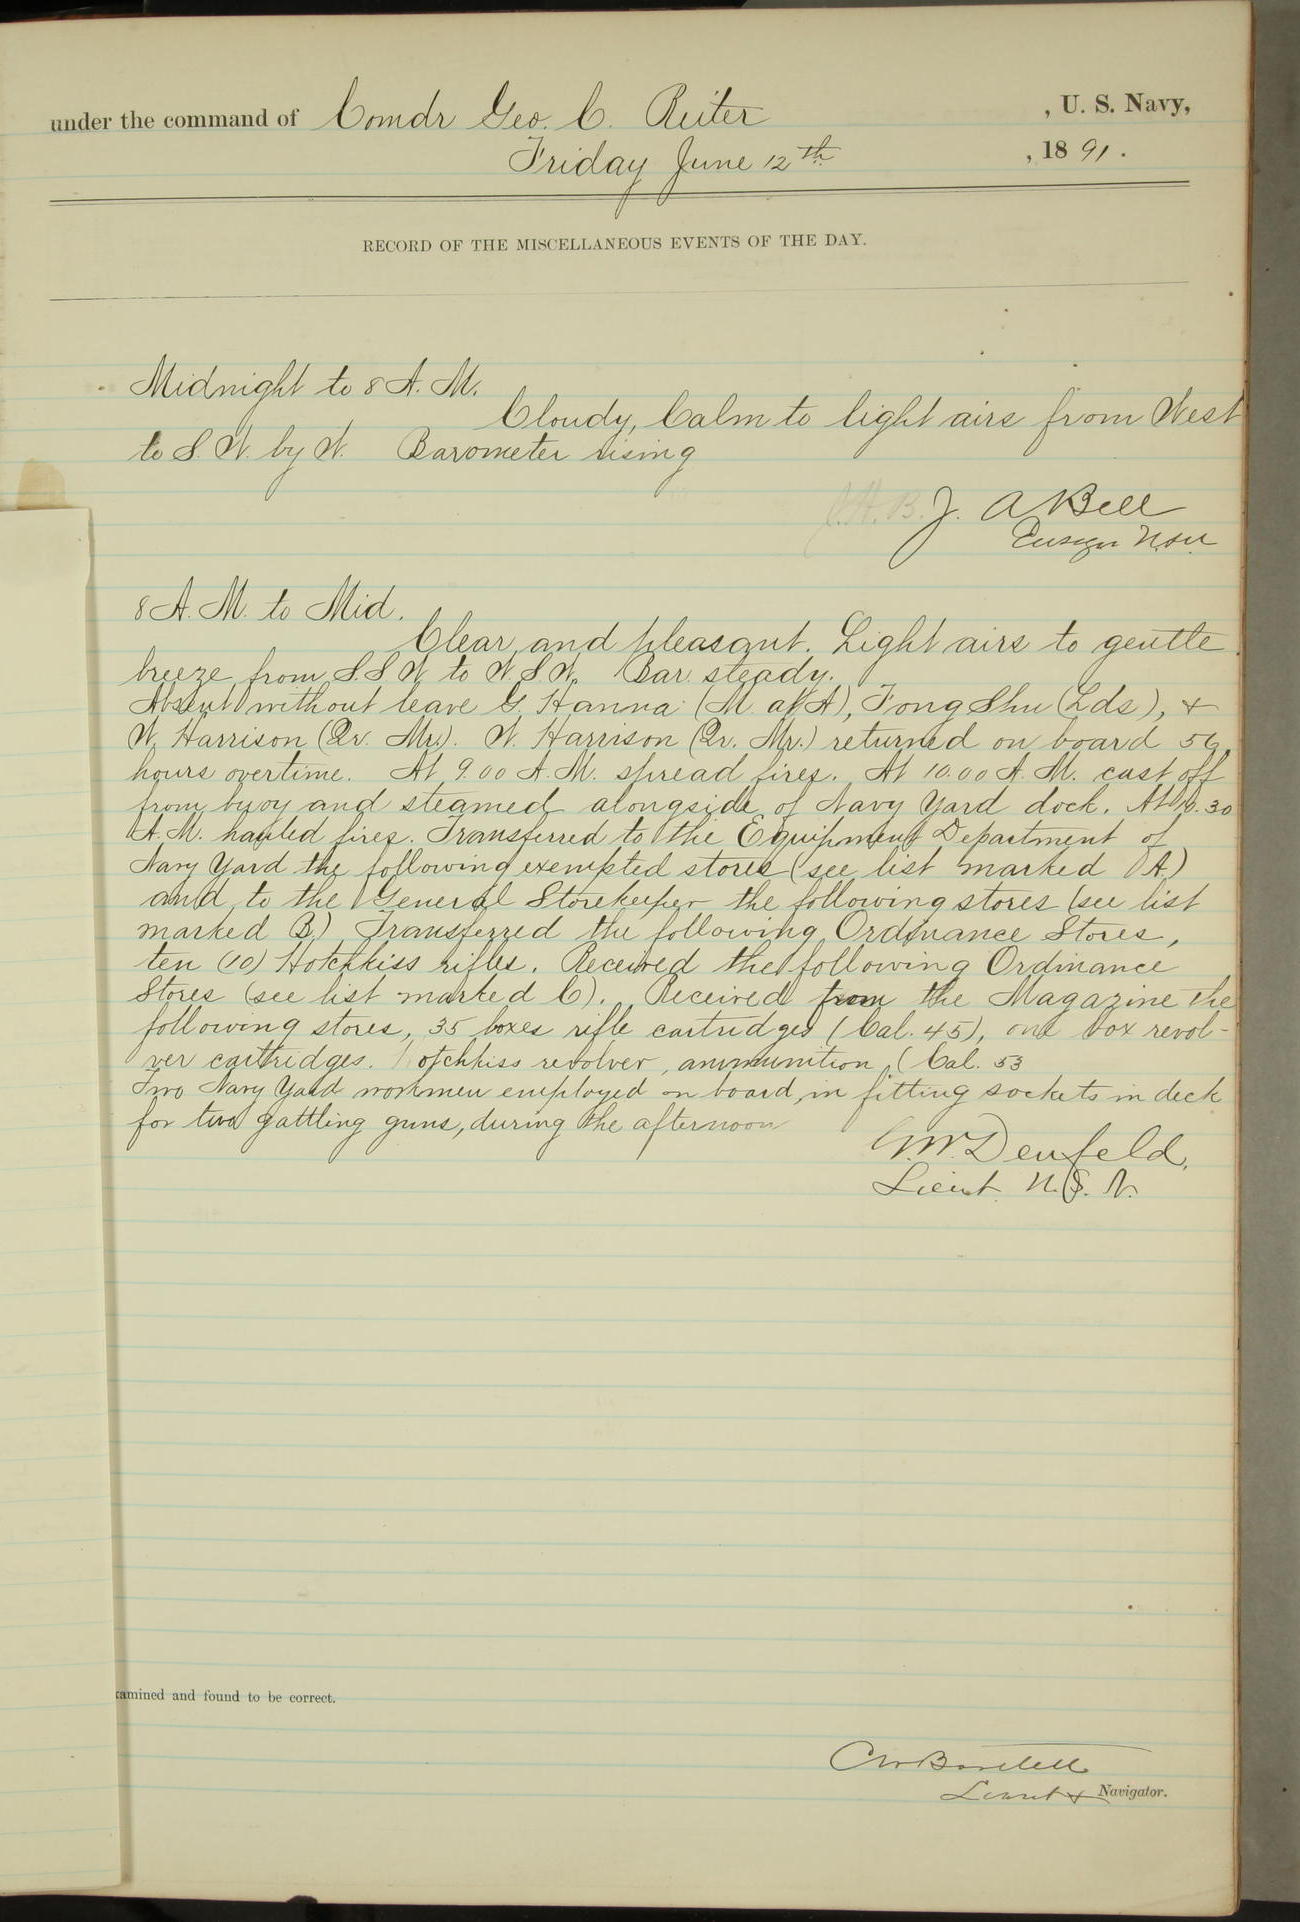 under the command of Comdr Geo. C. Reiter , U. S. Navy,
Friday June 12th. , 1891.
RECORD OF THE MISCELLANEOUS EVENTS OF THE DAY.
Midnight to 8 A.M.
Cloudy, Calm to light airs from West
to S.W. by W. Barometer rising
J.A.B. J. A Bell
Ensign USN
8 A.M. to Mid.
Clear and pleasant. Light airs to gentle
breeze from S.S.W to W.S.W. Bar. steady.
Absent without leave G. Hanna (M. at A), Fong Shu (Lds), +
W. Harrison (Qr. Mr.). W. Harrison (Qr. Mr.) returned on board 56
hours overtime. At 9.00 A.M. spread fires. At 10.00 A.M. cast off
from buoy and steamed alongside of Navy Yard dock. At 10.30
A.M. hauled fires. Transferred to the Equipment Department of
Navy Yard the following exempted stores (see list marked A)
and to the General Storekeeper the following stores (see list
marked B.) Transferred the following Ordinance Stores,
ten (10) Hotchkiss rifles. Received the following Ordinance
Stores (see list marked C). Received from the Magazine the
following stores, 35 boxes rifle cartridges (Cal. 45), one box revol-
ver cartridges. Hotchkiss revolver, ammunition, (Cal. 53
Two Navy Yard workmen employed on board, in fitting sockets in deck
for two gattling guns, during the afternoon
G.W. Denfeld,
Lieut. U.S.N.
xamined and found to be correct.
CW Bartlett
Lieut + Navigator.